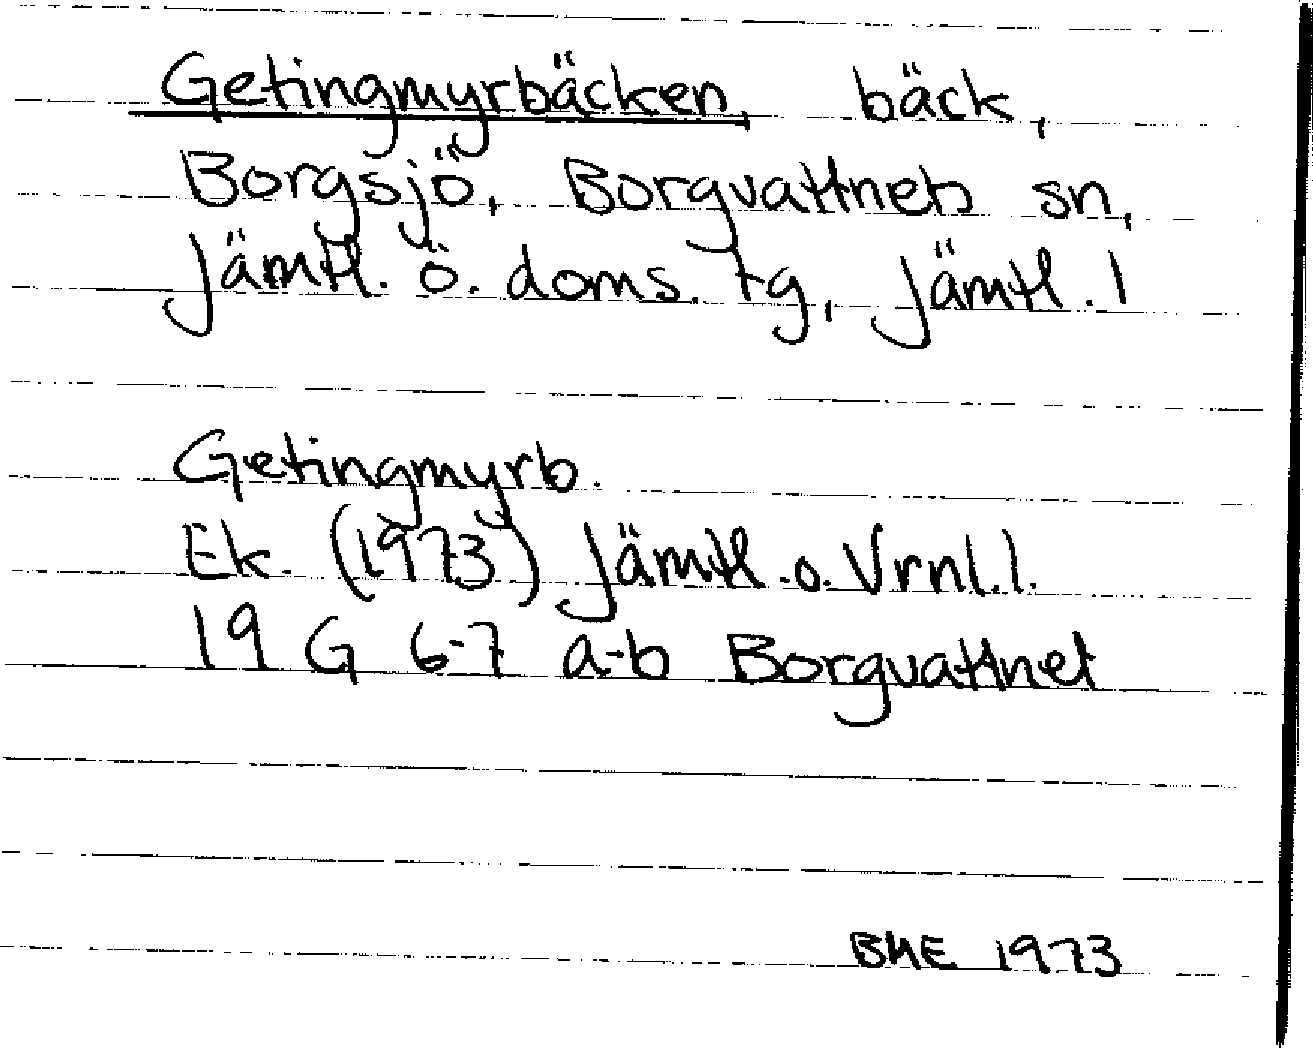 Getingmyrbäcken, bäck,
Borgsjö, Borgvattnets sn,
Jämtl. ö. doms. tg, Jämtl. l
Getingmyrb.
Ek. (1973) Jämtl. o. Vrnl. l.
19 G 6-7 a-b Borgvattnet
BHE 1973